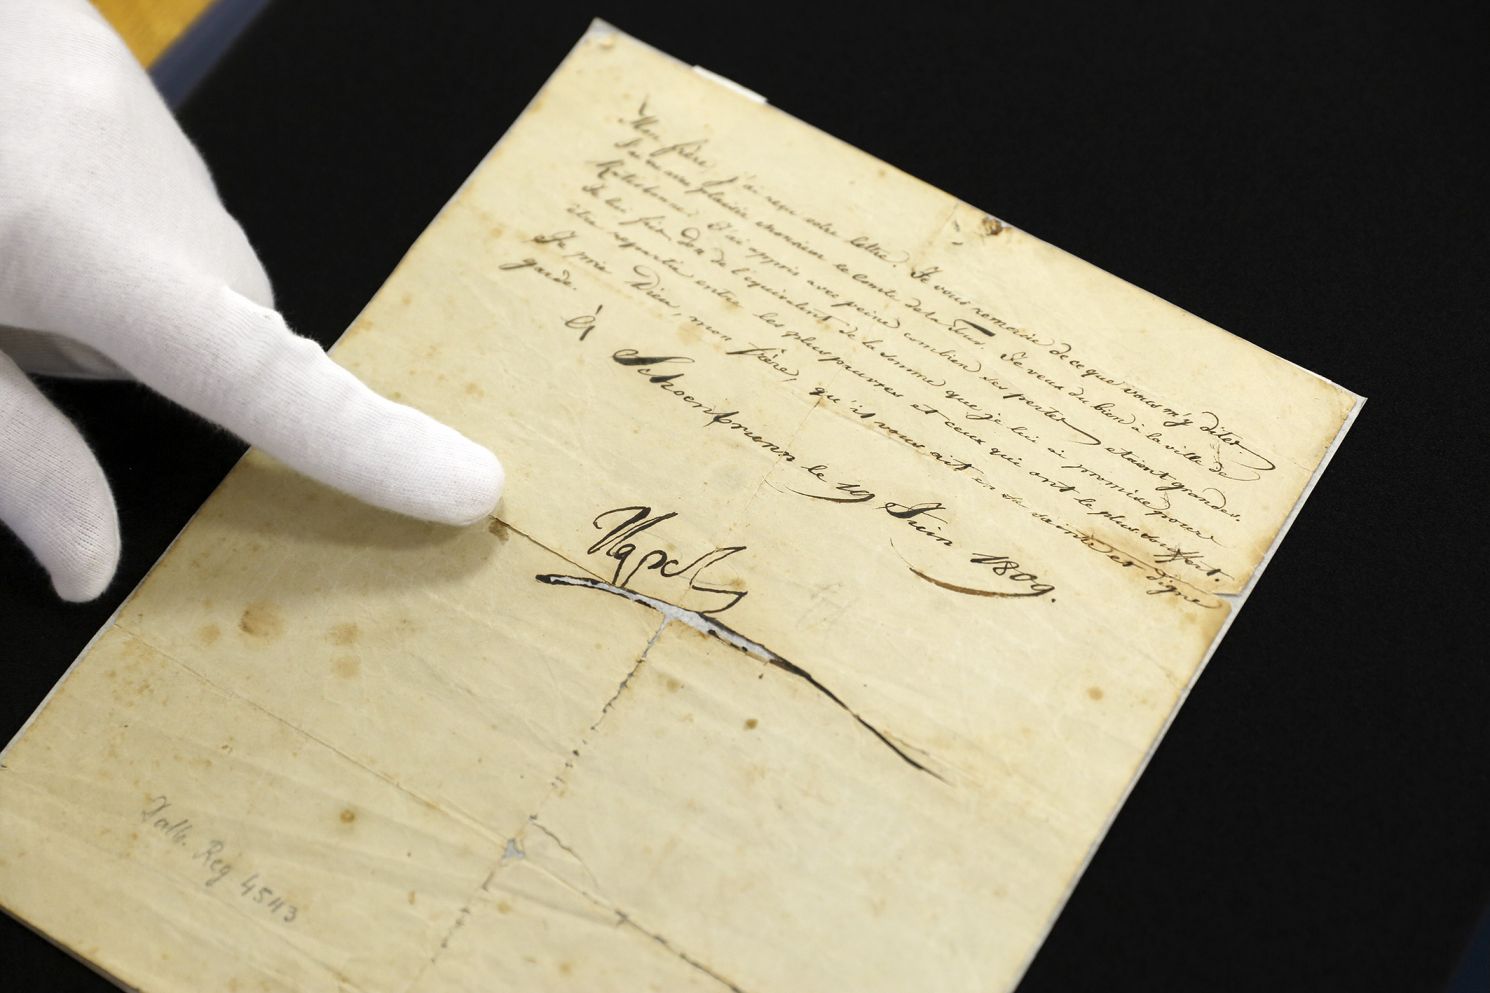 Mon frère, j'ai reçu votre lettre. Je vous remercie de ce que vous m'y dites.
J'ai vu avec plaisir monsieur le Comte de la Je veux du bien à la ville de
Ratisbonne. J'ai appris avec peine combien ses pertes étaient grandes.
Je lui de l'équivalent de la somme que je lui ai promise pour
être repartie entre les plus pauvres et ceux qui ont le plus souffert.
Je prie Dieu, mon frère, qu'il vous ait en sa sainte et digne
garde.
à Schoenbrunn le 19 Juin 1809.
Napol
Reg 4543